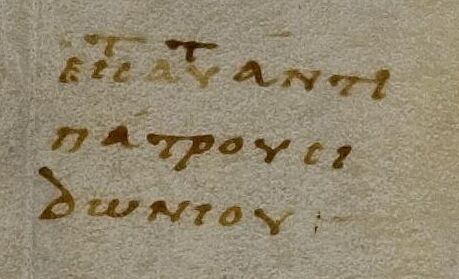 εις τ αυτ αντι
πατρου σι
δωνιου :-